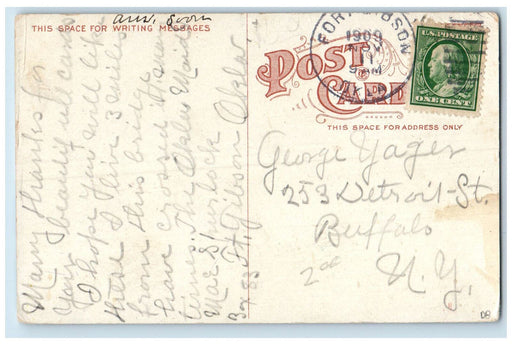 ans. soon
THIS SPACE FOR WRITING MESSAGES
Many thanks for
your beauty
I hope you will like
these I live 3 miles
from this bridge
have crossed it many
times. The
Mae Spurlock
Box 83 Ft. Gibson Okla.
FORT GIBSON
1909
NOV
9 AM
OKLA.
U.S. POSTAGE
ONE CENT
POST
CARD
THIS SPACE FOR ADDRESS ONLY
George Yager
253 Detroit St.
Buffalo
2d N.Y.
DB